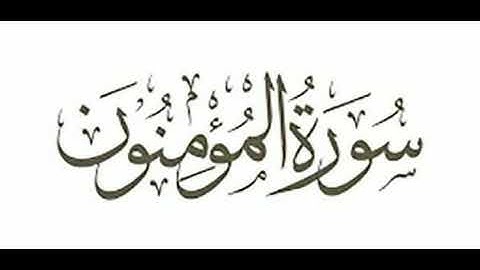 سُورَةُ المُؤْمِنُونَ